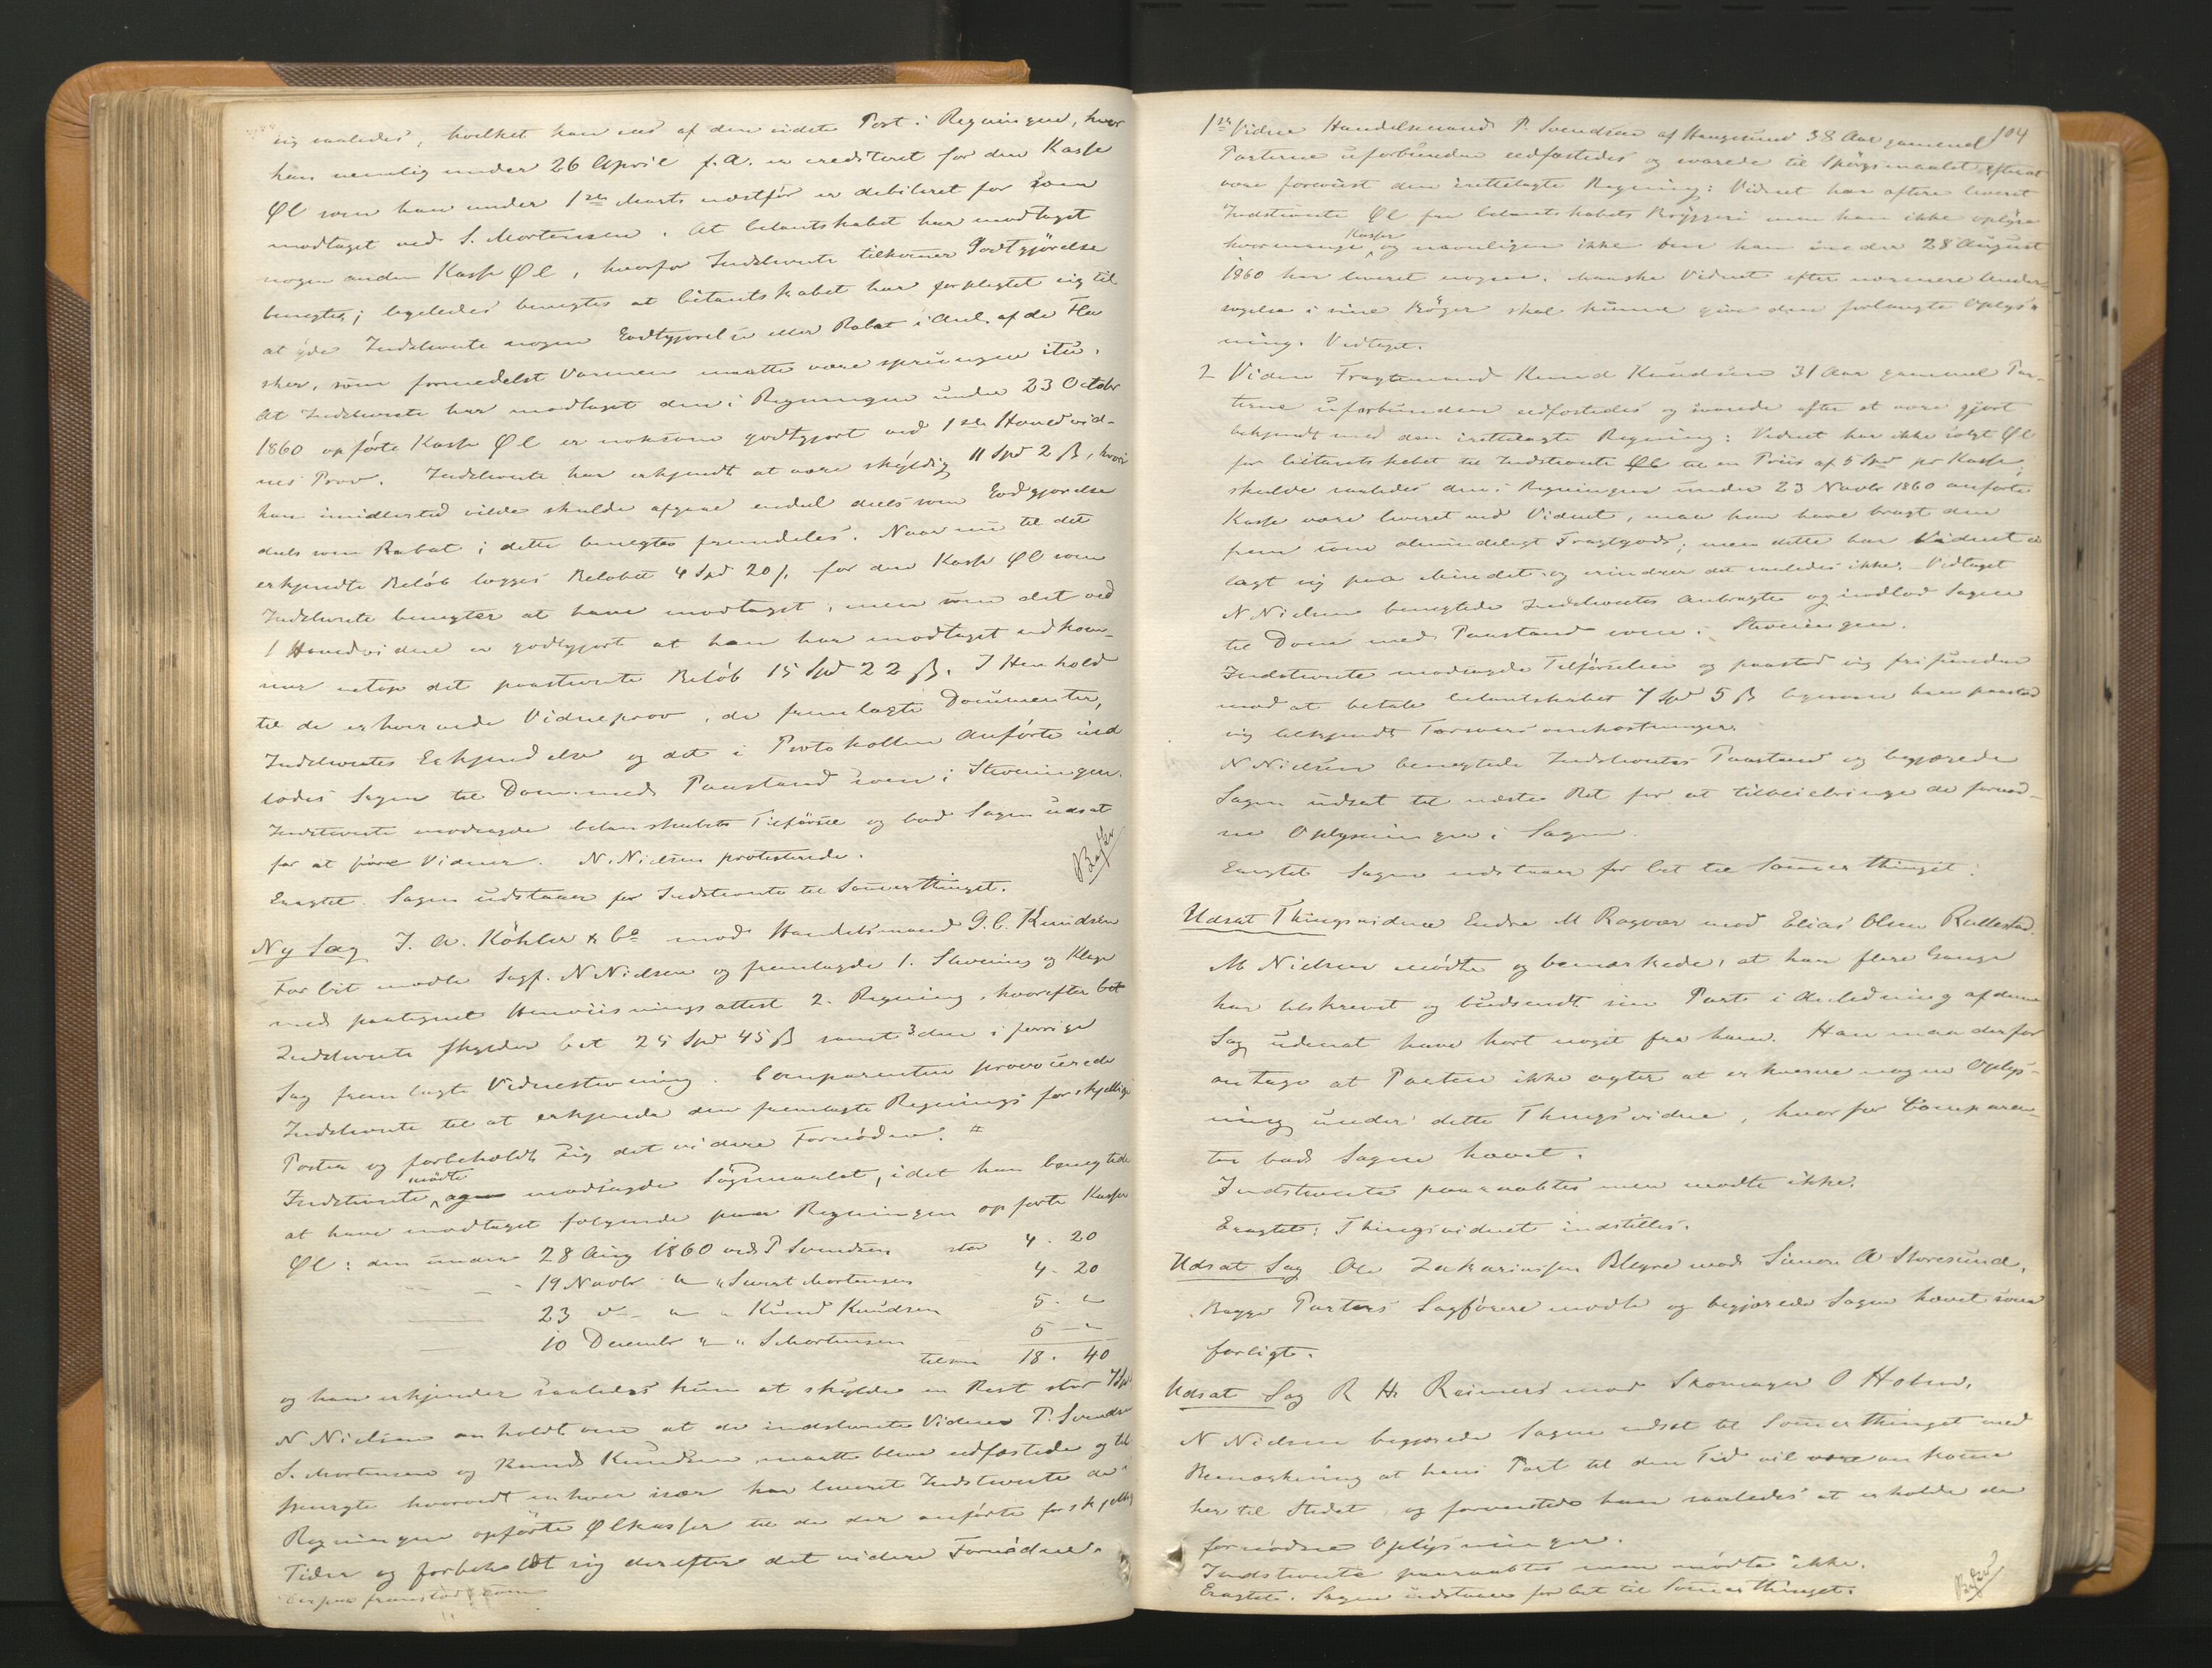 sig saaledes, hvilket kan sees af den sidste Post i Regningen, hvor
han nemlig under 26 April f. A. er crediteret for den Kasse
Øl som han under 1ste Marts næstfør er debiteret for som
modtaget ved S. Mortensen. At Citantskabet har modtaget
nogen anden Kasse Øl, hvorfor Indstevnte tilkommer Godtgjørelse
benegtes; ligeledes benegtes at Citantskabet har forpligtet sig til
at yde Indstevnte nogen Godtgjørelse eller Rabat i Anl. af de Fla
sker, som formedelst Varmen maatte være sprungne itu.
At Indstevnte har modtaget den i Regningen under 23 Octobr
1860 opførte Kasse Øl er noksom godtgjort ved 1ste Hovedvid-
nes Prov. Indstevnte har erkjendt at være skyldig 11 Spd 2 ß, hvori
han imidlertid vilde skulde afgaae endeel deels som Godgjørelse
deels som Rabat; dette benegtes fremdeles. Naar nu til det
erkjendte Beløb lægges Beløbet 4 Spd 20 ß for den Kasse Øl som
Indstevnte benegter at have modtaget, men som det ved
1 Hovedvidne er godtgjort at han har modtaget udkom-
mer netop det paastevnte Beløb 15 Spd 22 ß. I Henhold
til de erhvervede Vidneprov, de fremlagte Documenter,
Indstevntes Erkjendelse og det i Protokollen Anførte ind
lodes Sagen til Dom med Paastand som i Stevningen.
Indstevnte modsagde Citanskabets Tilførsel og bad Sagen udsat
for at føre Vidner. N. Nielsen protesterede.
Eragtet. Sagen udstaaer for Indstevnte til Sommerthinget.
Ny Sag J. A. Köhler & Co mod Handelsmand G. C. Knudsen
For Cit mødte Sagf. N Nielsen og fremlagde 1. Stevning og Klage
med paategnet Henviisningsattest 2. Regning, hvorefter Cit
Indstevnte skylder Cit 25 Spd 45 ß samt 3 den i forrige
Sag fremlagte Vidnestevning. Comparenten provocerede
Indstevnte til at erkjende den fremlagte Regnings forskjellige
Poster og forbeholdt sig det videre Fornødne. #
Indstevnte mødte og modsagde Søgsmaalet, idet han benegtede
at have modtaget følgende paa Regningen opførte Kasser
Øl: den under 28 Aug 1860 ved P Svendsen stor 4 . 20
- 19 Novbr " " Sivert Mortensen 4 - 20
23 d- " " Knud Knudsen 5 . "
10 Decembr " " S Mortensen 5 - "
tilsm 18 . 40
og han erkjender saaledes kun at skylde en Rest stor 7 Spd
N Nielsen anholdt om at de indstevnte Vidner P. Svendsen
S. Mortensen og Knud Knudsen maatte blive edfæstede og til
spurgte hvorvidt enhver især har leveret Indstevnte de i
Regningen opførte Ølkasser til de der anførte forskjellige
Tider og forbeholdt sig derefter det videre Fornødne.
Derpaa fremstod som
104
1ste Vidne Handelsmand P. Svendsen af Haugesund 38 Aar gammel
Parterne uforbunden edfæstedes og svarede til Spørgsmaalet efterat
være foreviist den irettelagte Regning: Vidnet har oftere leveret
Indstevnte Øl fra Citantskabets Bryggeri men kan ikke oplyse
hvormange Kasser og navnligen ikke om han under 28 August
1860 har leveret nogen. Maaske Vidnet efter nærmere Under-
søgelse i sine Bøger skal kunne give den forlangte Oplys-
ning. Vedtaget.
2 Vidne Fragtemand Knud Knudsen 31 Aar gammel Par-
terne uforbunden edfæstedes og svarede efter at være gjort
bekjendt med den irettelagte Regning: Vidnet har ikke solgt Øl
for Citantskabet til Indstevnte Øl til en Priis af 5 Spd pr Kasse,
skulde saaledes den i Regningen under 23 Novbr 1860 anførte
Kasse være leveret ved Vidnet, maa han have bragt den
frem som almindeligt Fragtgods; men dette har Vidnet ei
lagt sig paa Minde og erindrer det saaledes ikke. Vedtaget
N Nielsen benegtede Indstevntes Anbragte og indlod Sagen
til Dom med Paastand som i Stevningen.
Indstevnte modsagde Tilførselen og paastod sig frifunden
mod at betale Citantskabet 7 Spd 5 ß ligesom han paastod
sig tilkjendt Forsvarsomkostninger.
N Nielsen benegtede Indstevntes Paastand og begjærede
Sagen udsat til næste Ret for at tilveiebringe de fornød-
ne Oplysninger i Sagen.
Eragtet Sagen udstaaer for Cit til Sommerthinget.
Udsat Thingsvidne Endre M Ragvær mod Elias Olsen Rullestad.
M Nielsen mødte og bemærkede, at han flere Gange
har tilskrevet og budsendt sin Part i Anledning af denne
Sag uden at have hørt noget fra ham. Han maa derfor
antage at Parten ikke agter at erhverve nogen Oplys-
ning under dette Thingsvidne, hvorfor Comparen-
ten bad Sagen hævet.
Indstevnte paaraabtes men mødte ikke.
Eragtet: Thingsvidnet indstilles.
Udsat Sag Ole Zakariassen Blegre mod Simon A Storesund.
Begge Parters Sagførere mødte og begjærede Sagen hævet som
forligt.
Udsat Sag R H. Reimers mod Skomager O Holm.
N Nielsen begjærede Sagen udsat til Sommerthinget med
Bemærkning at hans Part til den Tid vil være ankommen
her til Stedet, og forventede han saaledes at erholde de
fornødne Oplysninger.
Indstevnte paaraabtes men mødte ikke.
Eragtet. Sagen udstaaer for Cit til Sommerthinget.